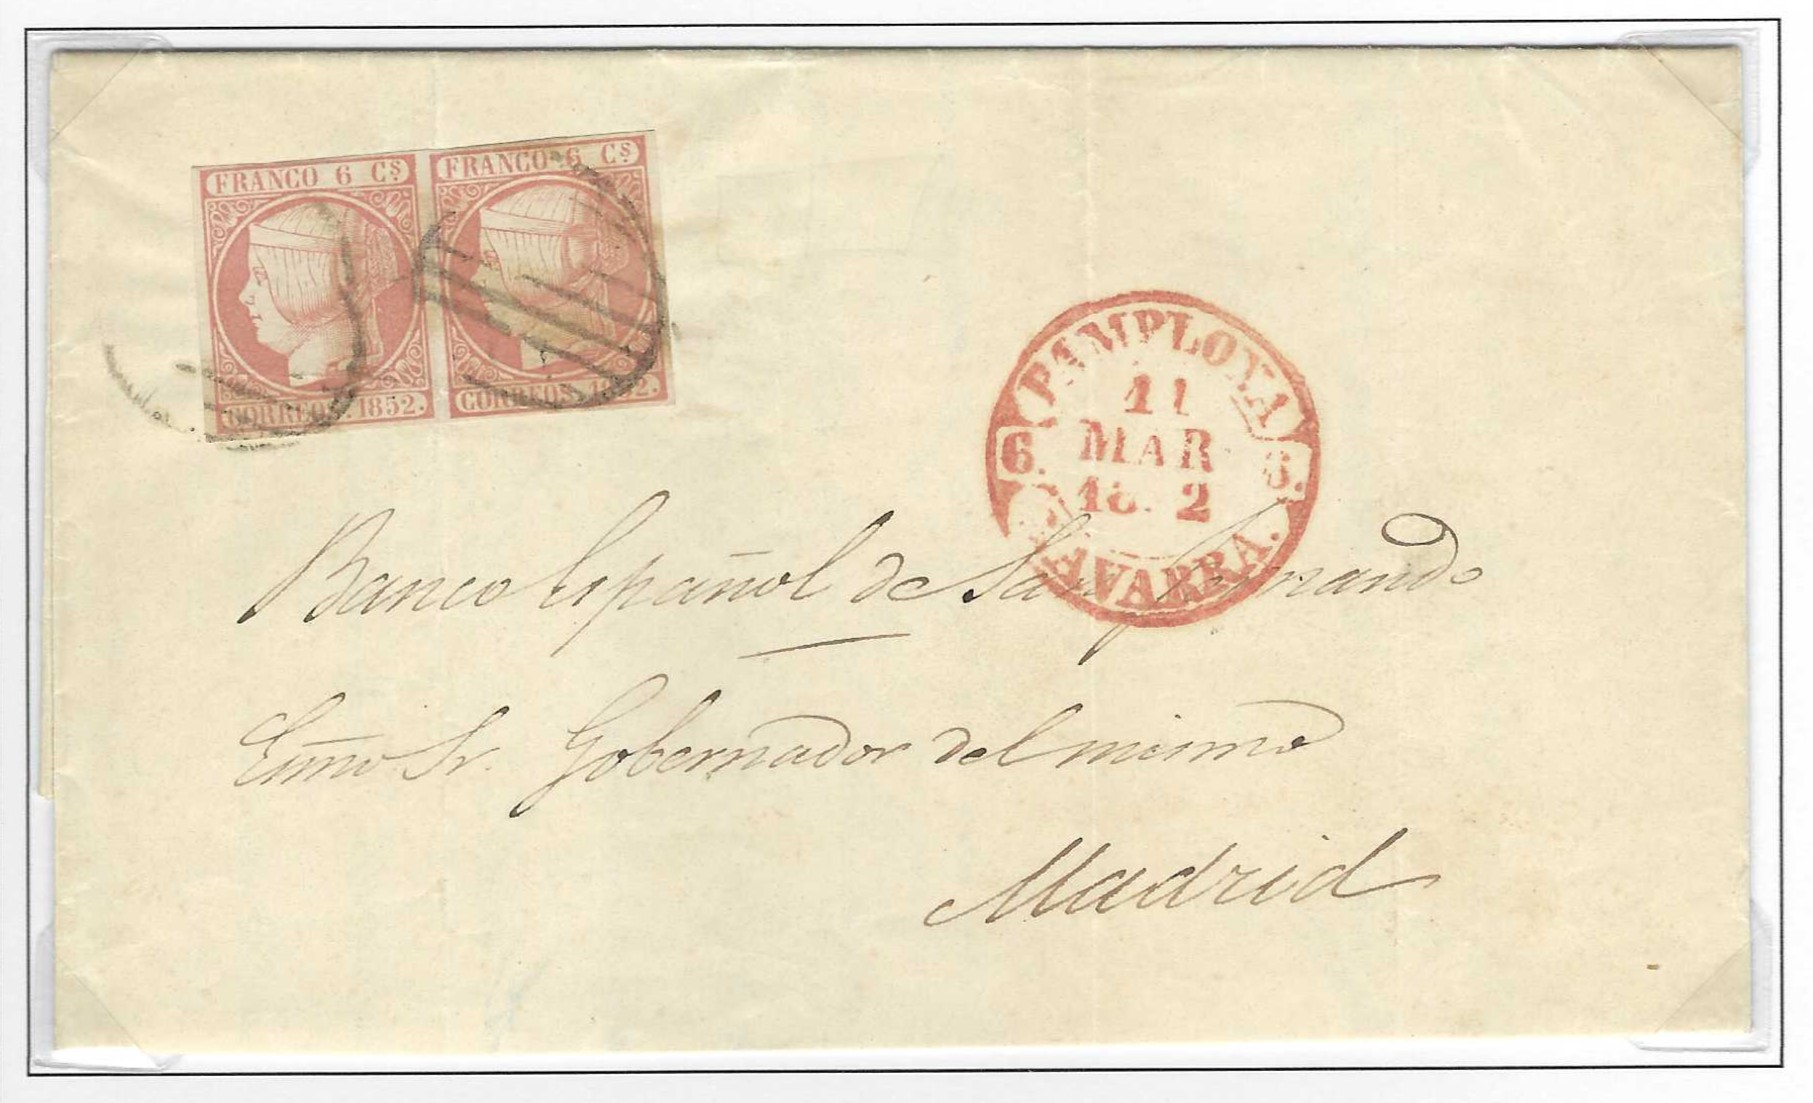 FRANCO 6 Cs.
CORREOS. 1852.
FRANCO 6 Cs.
CORREOS. 1852.
PAMPLONA
11
MAR
6. 6.
18 2
NAVARRA.
Banco Español de San Fernando
Exmo Sr. Gobernador del mismo
Madrid